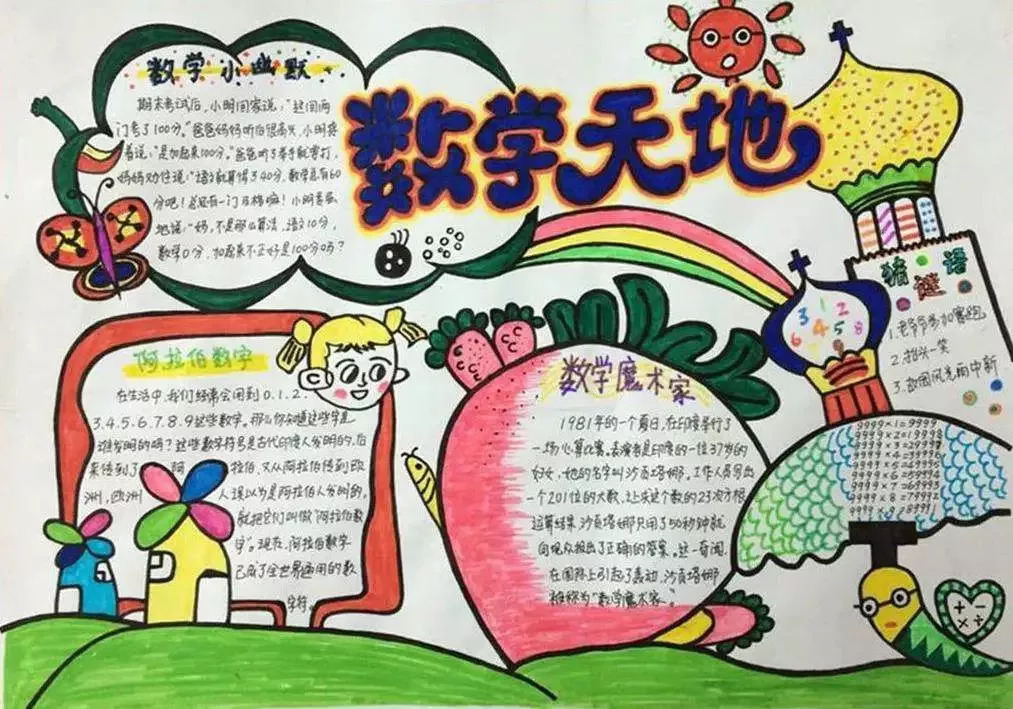 数学天地
数学小幽默
期末考试后，小明回家说："这回两
门考了100分。"爸爸妈妈听后很高兴，小明接
着说："是加起来100分。"爸爸听了举手就要打，
妈妈劝住说："语文就算得了40分，数学总有60
分吧！总还有一门及格嘛！小明委屈
地说："妈，不是那么算法，语文10分，
数学0分，加起来不正好是100分吗？
阿拉伯数字
在生活中，我们经常会用到0.1.2.
3.4.5.6.7.8.9这些数字。那么你知道这些字是
谁发明的吗？这些数字符号是古代印度人发明的，后
来传到了阿拉伯，又从阿拉伯传到欧
洲，欧洲人误以为是阿拉伯人发明的，
就把它们叫做"阿拉伯数
字"。现在，阿拉伯数字
已成了全世界通用的数
字符。
数学魔术家
1981年的一个夏日，在印度举行了
一场心算比赛。表演者是印度的一位37岁的
妇女，她的名字叫沙贡塔娜。工作人员写出
一个201位的大数，让求这个数的23次方根
运算结果，沙贡塔娜只用了50秒钟就
向观众报出了正确的答案。这一奇闻
在国际上引起了轰动，沙贡塔娜
被称为"数学魔术家"。
3 1 2
6 4 5 8
猜谜语
1.老爷爷参加赛跑
2.抬头一笑
3.故国风光雨中新
9999×1=9999
9999×2=19998
9999×3=29997
9999×4=39996
9999×5=49995
9999×6=59994
9999×7=69993
9999×8=79992
9999×9=89991
+ -
× ÷